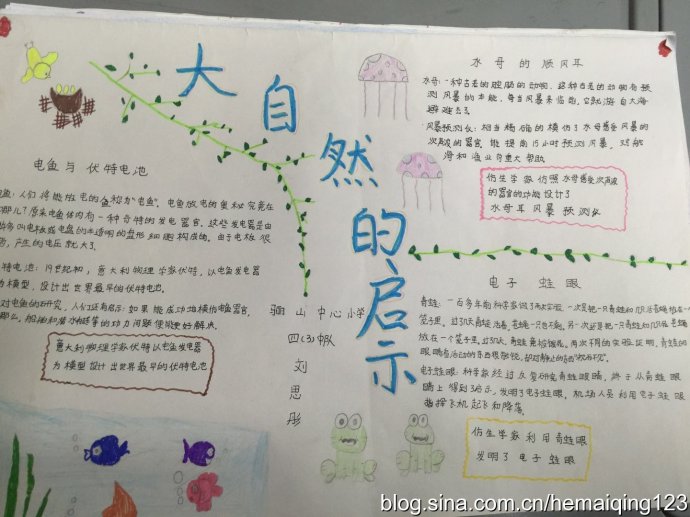 大自然的启示
水母的顺风耳
水母:一种古老的腔肠的动物,这种古老的动物有预
测风暴的本能,每当风暴来临前,它就游向大海
避难去了。
风暴预测仪:相当精确的模仿了水母感受风暴的
次声波的器官,能提前15小时预测风暴,对航
海和渔业
仿生学家仿照水母感受次声波
的器官的功能设计了
水母耳风暴预测仪
电鱼与伏特电池
电鱼:人们将能放电的鱼称为“电鱼”。电鱼放电的奥秘究竟在
哪儿?原来电鱼体内有一种奇特的发电器官。这些发电器是由
许多叫电板或电盘的半透明的盘形细胞构成的。由于电板很
产生的电压就大了。
特电池:19世纪初,意大利物理学家伏特,以电鱼发电器
为模型,设计出世界最早的伏特电池。
对电鱼的研究,人们还有启示:如果能成功地模仿电鱼器官,
那么,船舶和潜水艇等的动力问题便能更好解点。
意大利物理学家伏特以电鱼发电器
为模型设计出世界最早的伏特电池
骊山中心小学
四(3)中队
刘思彤
电子蛙眼
青蛙:一百多年前科学家做了两次实验,一次是把一只青蛙和
笼子里。过了几天青蛙活着,苍蝇一只也不剩。另一次
放在一个笼子里。过了几天,青蛙竟被饿死。两次不同的实验证明,青蛙的
眼睛看活动的东西很敏锐,却对静止的东西“视而不见”。
电子蛙眼:科学家经过反复研究青蛙眼睛,终于从青蛙眼
睛上得到了启示,发明了电子蛙眼,机场人员利用电子蛙眼
指挥飞机起飞和降落。
仿生学家利用青蛙眼
发明了电子蛙眼
blog.sina.com.cn/hemaiqing123